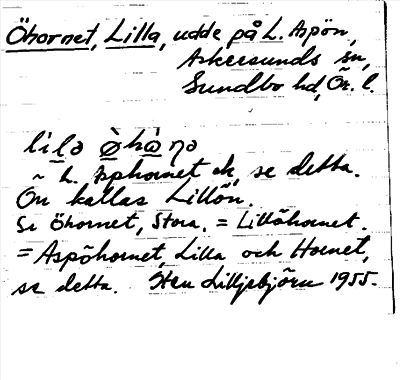 Öhornet, Lilla, udde på L. Aspön,
Askersunds sn,
Sundbo hd, Ör. l.
lìlə ø̀hὰṇə
~ L. Asphornet ek, se detta.
Ön kallas Lillön.
Se Öhornet, Stora. = Lillöhornet.
= Aspöhornet, Lilla och Hornet,
se detta. Sten Lilljebjörn 1955.